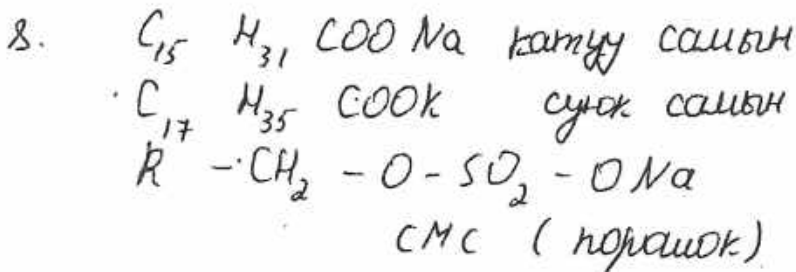 8. C₁₅ H₃₁ COO Na катуу самын
C₁₇ H₃₅ COOK суюк самын
R - CH₂ - O - SO₂ - O Na
СМС (порошок)